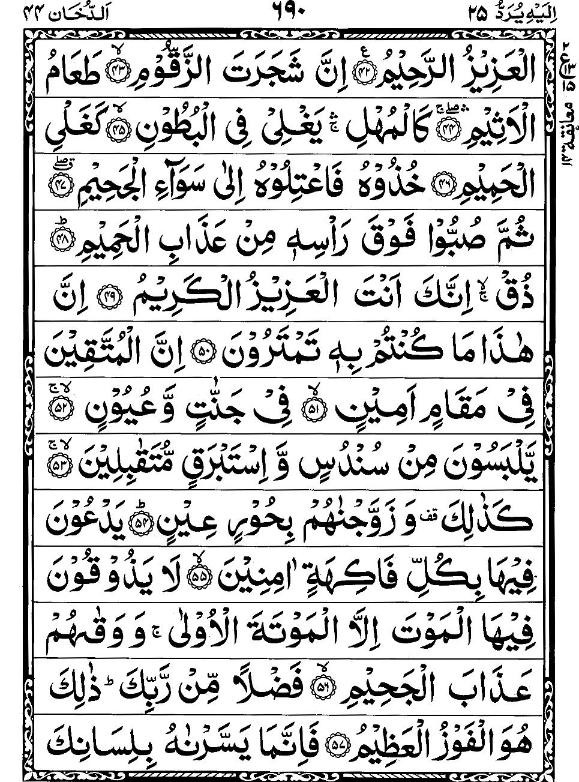 اِلَيۡهِ يُرَدُّ ٢٥ ٦٩٠ اَلدُّخَان ٤٤
الۡعَزِيۡزُ الرَّحِيۡمُ ﴿٤٢﴾ اِنَّ شَجَرَتَ الزَّقُّوۡمِ ﴿٤٣﴾ طَعَامُ
الۡاَثِيۡمِ ﴿٤٤﴾ كَالۡمُهۡلِ ۛ يَغۡلِىۡ فِى الۡبُطُوۡنِ ﴿٤٥﴾ كَغَلۡىِ
الۡحَمِيۡمِ ﴿٤٦﴾ خُذُوۡهُ فَاعۡتِلُوۡهُ اِلٰى سَوَآءِ الۡجَحِيۡمِ ﴿٤٧﴾
ثُمَّ صُبُّوۡا فَوۡقَ رَاۡسِهٖ مِنۡ عَذَابِ الۡحَمِيۡمِ ﴿٤٨﴾
ذُقۡ ۙۚ اِنَّكَ اَنۡتَ الۡعَزِيۡزُ الۡكَرِيۡمُ ﴿٤٩﴾ اِنَّ
هٰذَا مَا كُنۡتُمۡ بِهٖ تَمۡتَرُوۡنَ ﴿٥٠﴾ اِنَّ الۡمُتَّقِيۡنَ
فِىۡ مَقَامٍ اَمِيۡنٍ ﴿٥١﴾ فِىۡ جَنّٰتٍ وَّعُيُوۡنٍ ﴿٥٢﴾
يَّلۡبَسُوۡنَ مِنۡ سُنۡدُسٍ وَّاِسۡتَبۡرَقٍ مُّتَقٰبِلِيۡنَ ﴿٥٣﴾
كَذٰلِكَ قف وَزَوَّجۡنٰهُمۡ بِحُوۡرٍ عِيۡنٍ ﴿٥٤﴾ يَدۡعُوۡنَ
فِيۡهَا بِكُلِّ فَاكِهَةٍ اٰمِنِيۡنَ ﴿٥٥﴾ لَا يَذُوۡقُوۡنَ
فِيۡهَا الۡمَوۡتَ اِلَّا الۡمَوۡتَةَ الۡاُوۡلٰى ۚ وَوَقٰٮهُمۡ
عَذَابَ الۡجَحِيۡمِ ﴿٥٦﴾ فَضۡلًا مِّنۡ رَّبِّكَ ؕ ذٰلِكَ
هُوَ الۡفَوۡزُ الۡعَظِيۡمُ ﴿٥٧﴾ فَاِنَّمَا يَسَّرۡنٰهُ بِلِسَانِكَ
معانقة ١٣